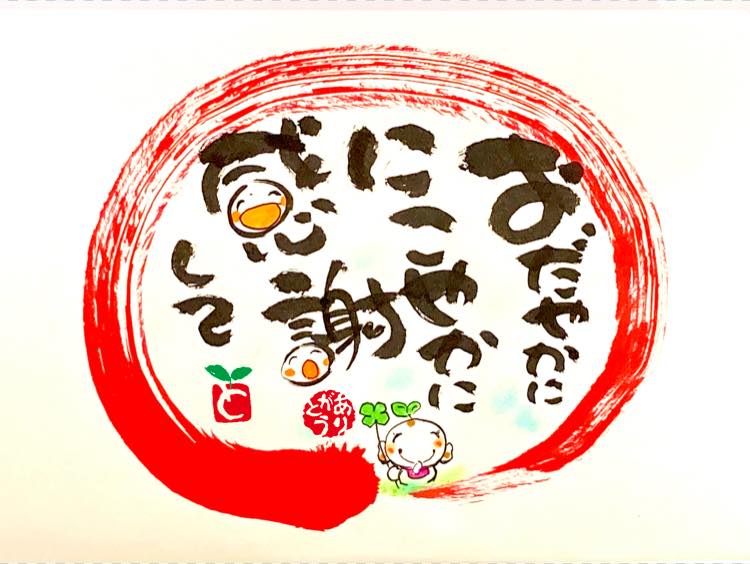 おだやかに
にこやかに
感謝
して
ありがとう
と